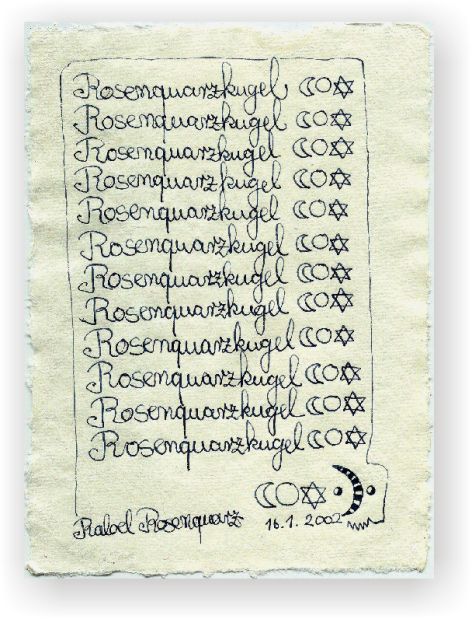 Rosenquarzkugel ☾○✡
Rosenquarzkugel ☾○✡
Rosenquarzkugel ☾○✡
Rosenquarzkugel ☾○✡
Rosenquarzkugel ☾○✡
Rosenquarzkugel ☾○✡
Rosenquarzkugel ☾○✡
Rosenquarzkugel ☾○✡
Rosenquarzkugel ☾○✡
Rosenquarzkugel ☾○✡
Rosenquarzkugel ☾○✡
Rosenquarzkugel ☾○✡
☾○✡
Rosenquarz 16.1.2002